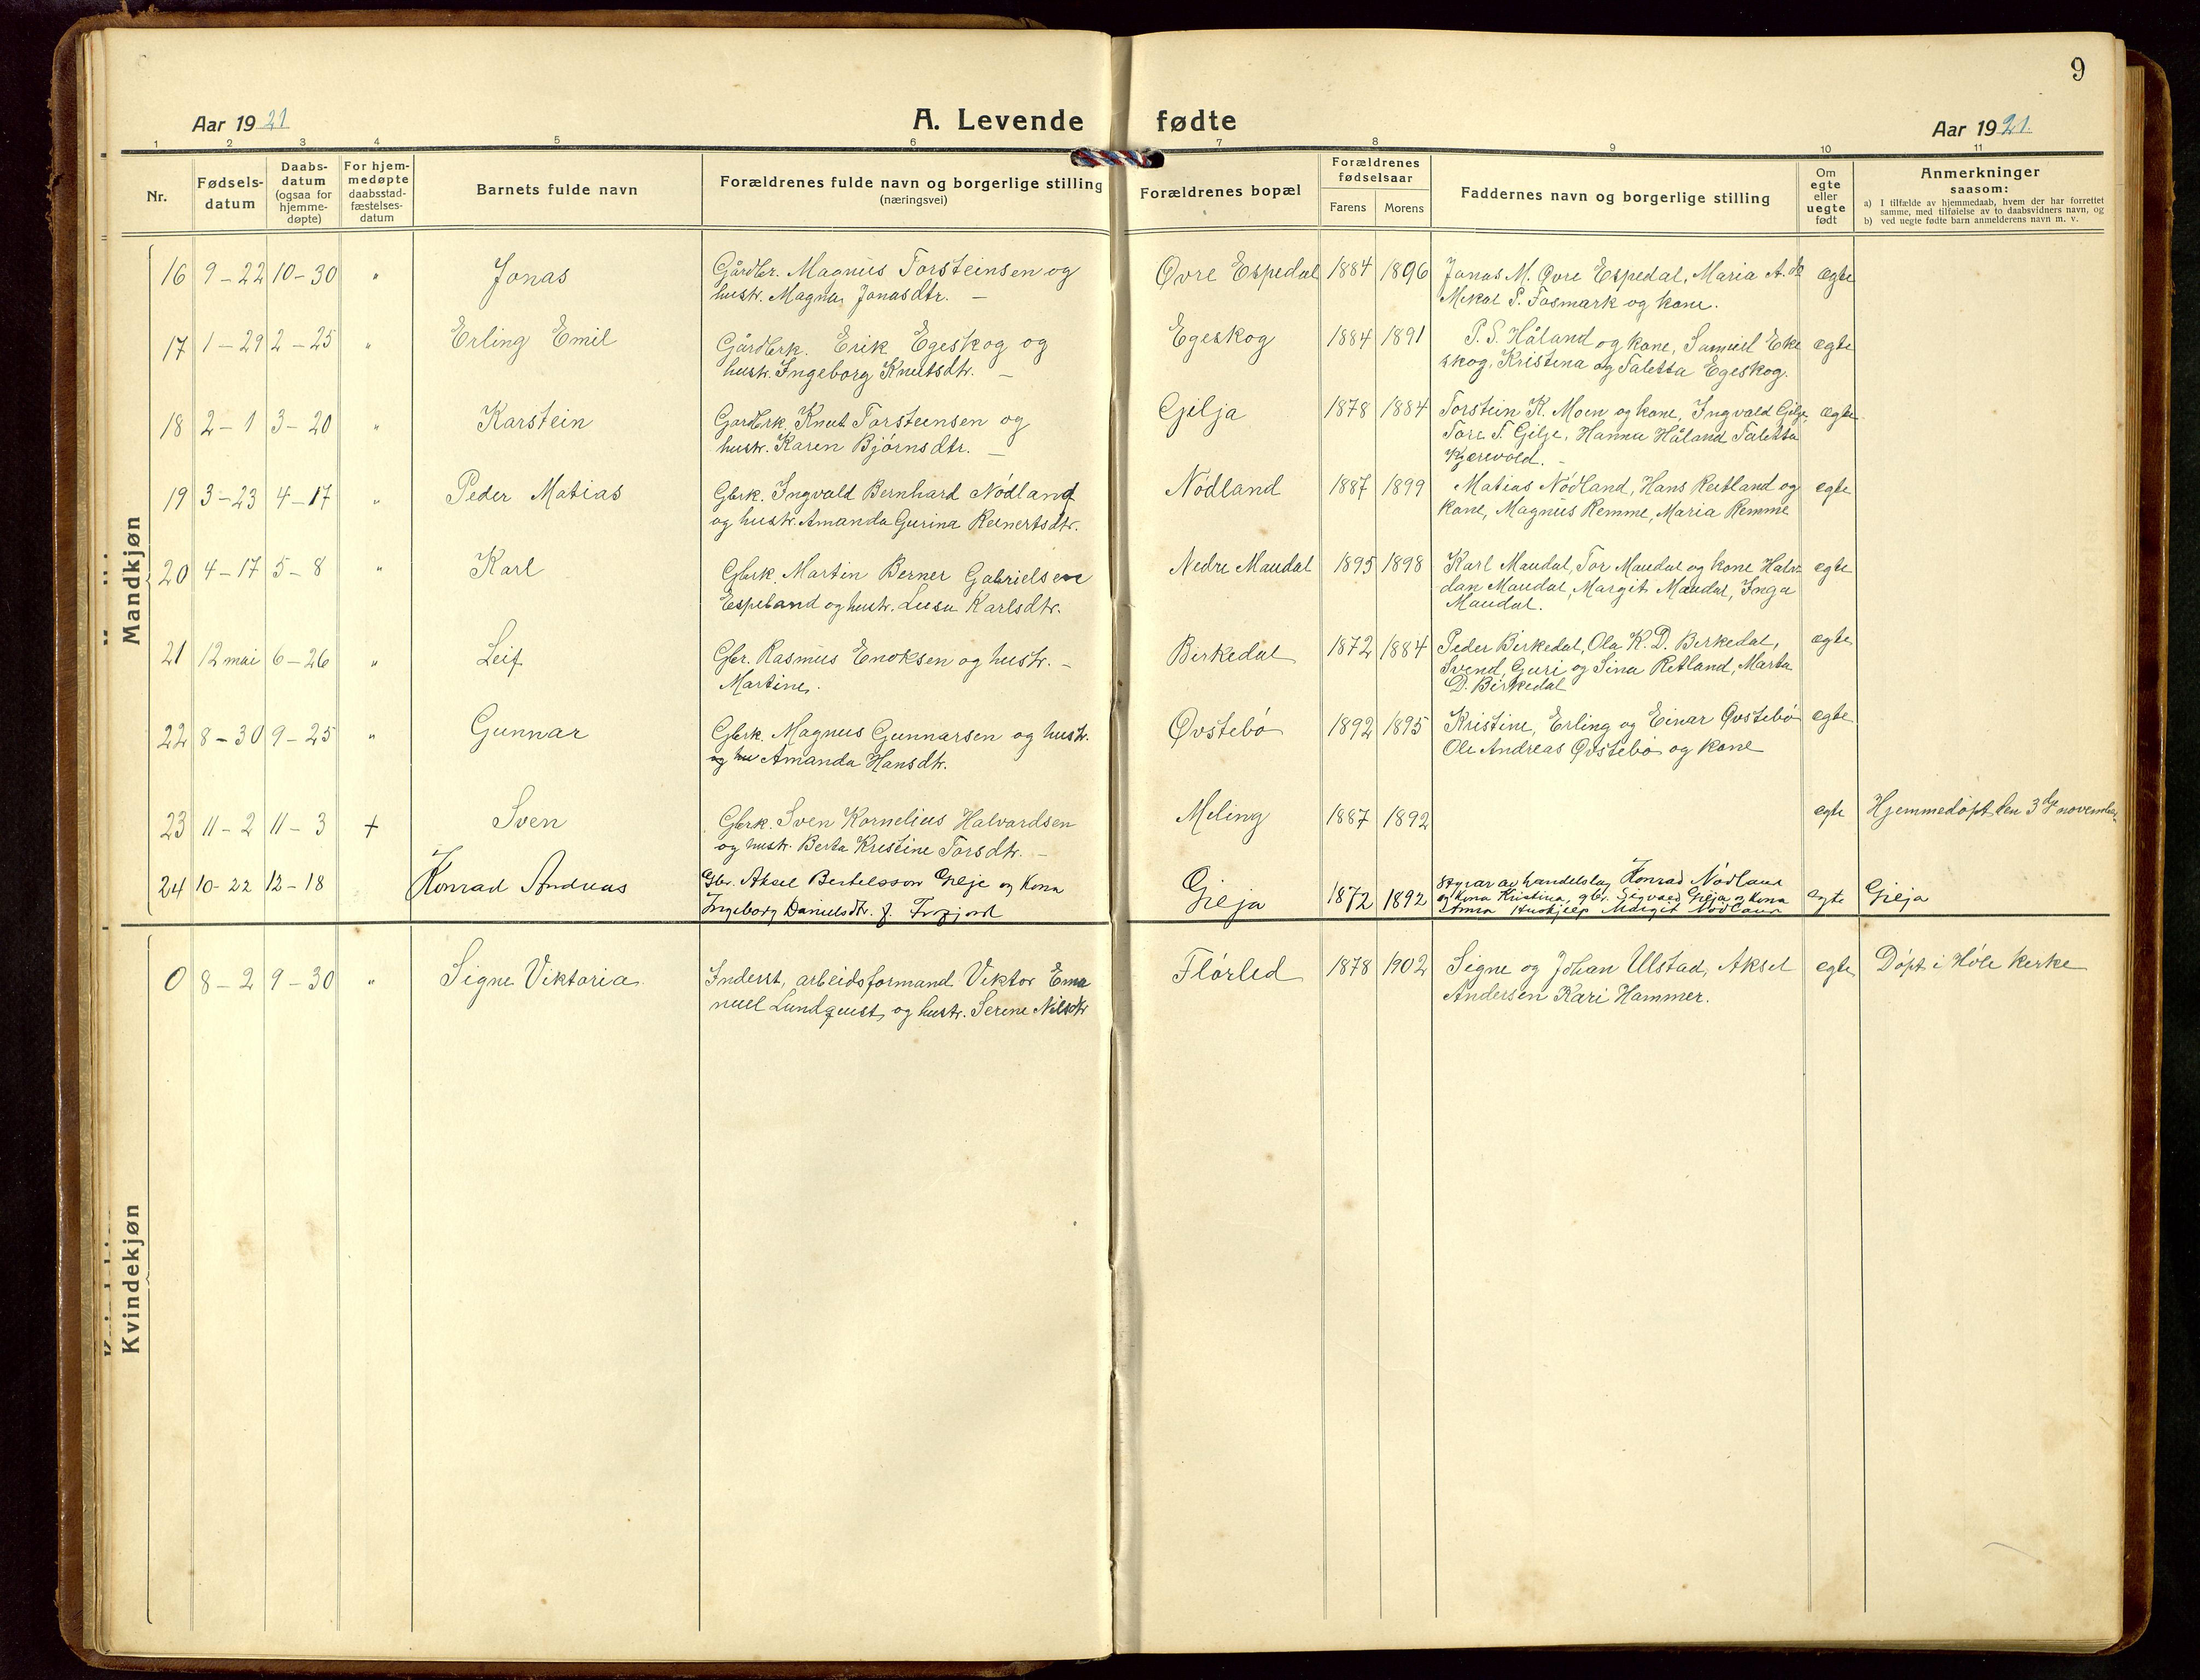 9
Aar 1921
A. Levende fødte
Aar 1921
1 2 3 4 5 6 7 8 9 10 11
Nr.
Fødsels-
datum
Daabs-
datum
(ogsaa for
hjemme-
døpte)
For hjem-
medøpte
daabsstad-
fæstelses-
datum
Barnets fulde navn
Forældrenes fulde navn og borgerlige stilling
(næringsvei)
Forældrenes bopæl
Forældrenes
fødselsaar
Farens Morens
Faddernes navn og borgerlige stilling
Om
egte
eller
uegte
født
Anmerkninger
saasom:
a) I tilfælde av hjemmedaab, hvem der har forrettet
samme, med tilføielse av to daabsvidners navn, og
b) ved uegte fødte barn anmelderens navn m. v.
Mandkjøn
16 9-22 10-30 " Jonas
Gårdbr. Magnus Torsteinsen og
hustr. Magna Jonasdtr. —
Øvre Espedal 1884 1896
Jonas M. Øvre Espedal, Maria A. do
Mikal S. Fosmark og kone.
egte
17 1-29 2-25 " Erling Emil
Gårdbrk. Erik Egeskog og
hustr. Ingeborg Knutsdtr. —
Egeskog 1884 1891
P. S. Håland og kone, Samuel Eke
skog, Kristina og Taletta Egeskog.
egte
18 2-1 3-20 " Karstein
Gardbrk. Knut Torsteinsen og
hustr. Karen Bjørnsdtr. —
Gilja 1878 1884
Torstein K. Moen og kone, Ingvald Gilje,
Tore T. Gilje, Hanna Håland Taletta
Kjærevold. —
egte
19 3-23 4-17 " Peder Matias
Gbrk. Ingvald Bernhard Nødland
og hustr. Amanda Gurina Reinertsdtr.
Nødland 1887 1899
Matias Nødland, Hans Reitland og
kone, Magnus Remme, Maria Remme
egte
20 4-17 5-8 " Karl
Gbrk. Martin Berner Gabrielsen
Espeland og hustr. Lusu Karlsdtr.
Nedre Maudal 1895 1898
Karl Maudal, Tor Maudal og kone Halv-
dan Maudal, Margit Maudal, Inga
Maudal.
egte
21 12 mai 6-26 " Leif
Gbr. Rasmus Enoksen og hustr. —
Martine.
Birkedal 1872 1884
Peder Birkedal, Ola K. D. Birkedal,
Svend, Guri og Sina Retland, Marta
D. Birkedal
egte
22 8-30 9-25 " Gunnar
Gbrk. Magnus Gunnarsen og hustr.
og hu Amanda Hansdtr.
Øvstebø 1892 1895
Kristine, Erling og Einar Øvstebø
Ole Andreas Øvstebø og kone
egte
23 11-2 11-3 + Sven
Gbrk. Sven Kornelius Halvardsen
og hustr. Berta Kristine Torsdtr. —
Meling 1887 1892
egte
Hjemmedøpt den 3dje november
24 10-22 12-18 Konrad Andreas
Gbr. Aksel Bertelsson Gilje og kona
Ingeborg Danielsdtr. f. Frafjord
Gilja 1872 1892
Styrar av handelslag Konrad Nødland
og kona Kristina, gbr. Sigvald Gilja og kona
Anna Hushjelp Margit Nødland
egte
Gilja
Kvindekjøn
0 8-2 9-30 " Signe Viktoria
Inderst, arbeidsformand Viktor Ema
nuel Lundquist, og hustr. Serine Nilsdtr
Flørled 1878 1902
Signe og Johan Ulstad, Aksel
Andersen Kari Hammer.
egte
Døpt i Høle kirke